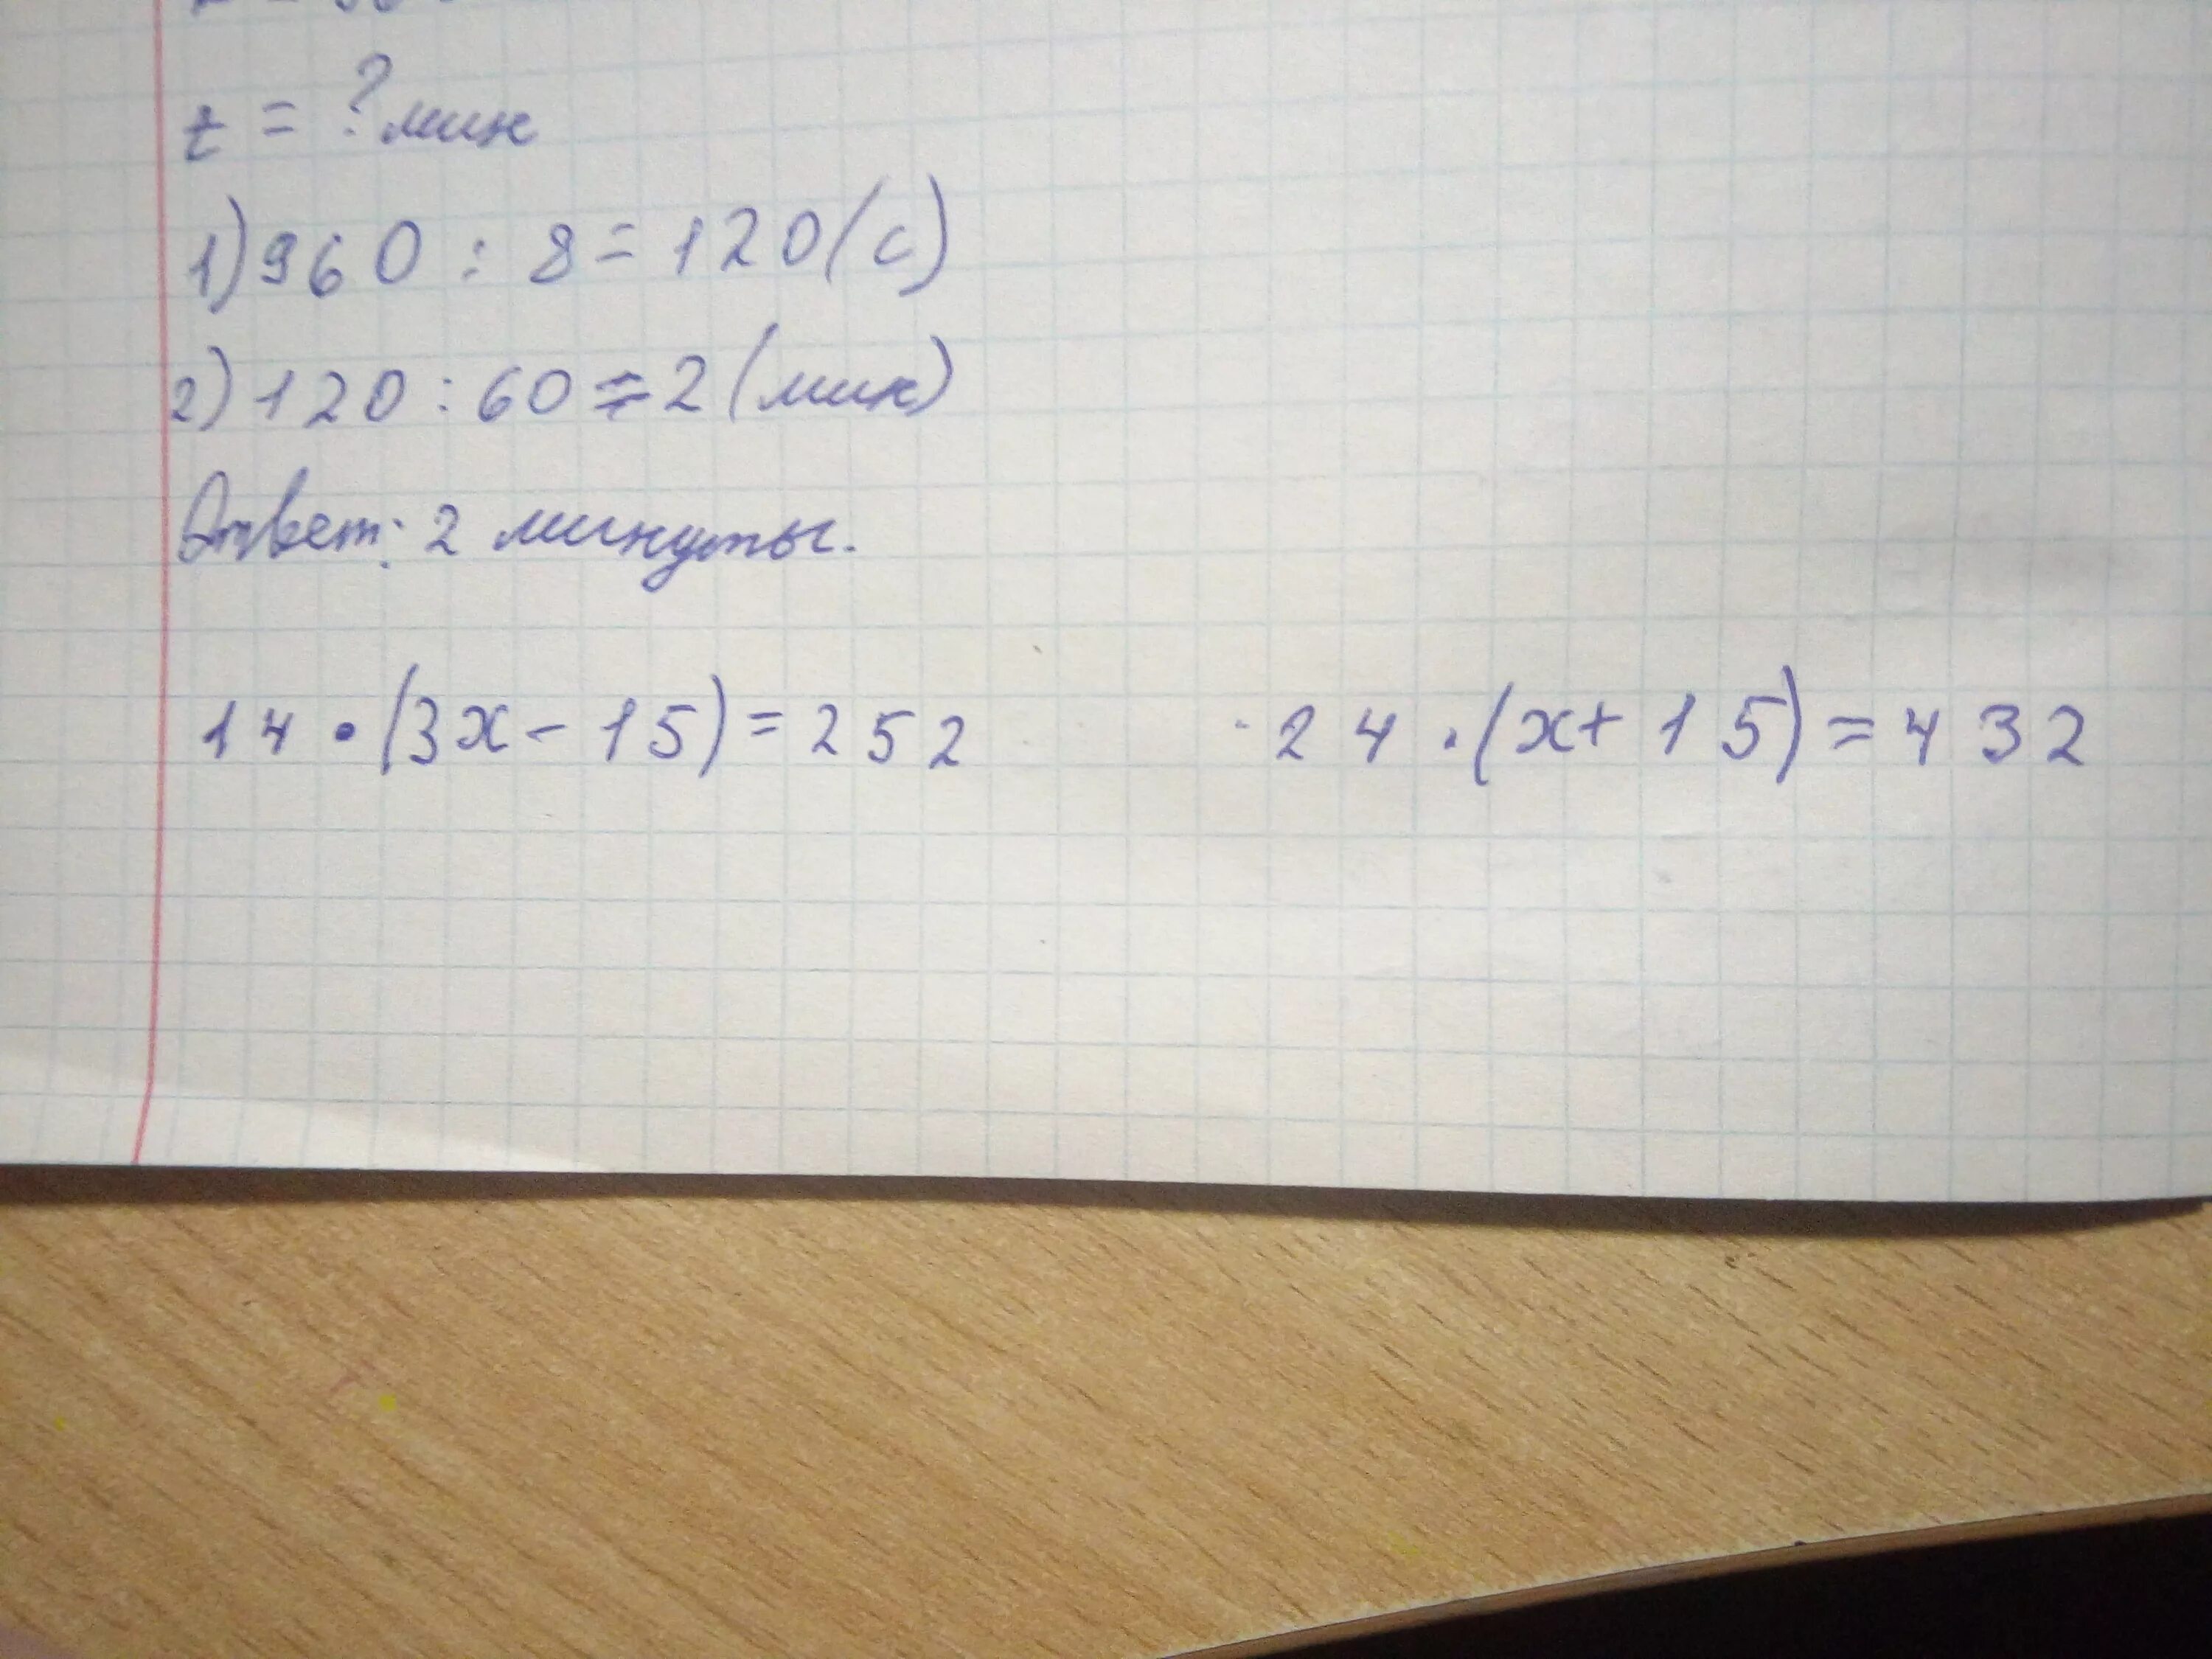 t = ? мин
1) 960 : 8 = 120 (с)
2) 120 : 60 = 2 (мин)
Ответ: 2 минуты.
14 • (3x - 15) = 252
24 . (x + 15) = 432